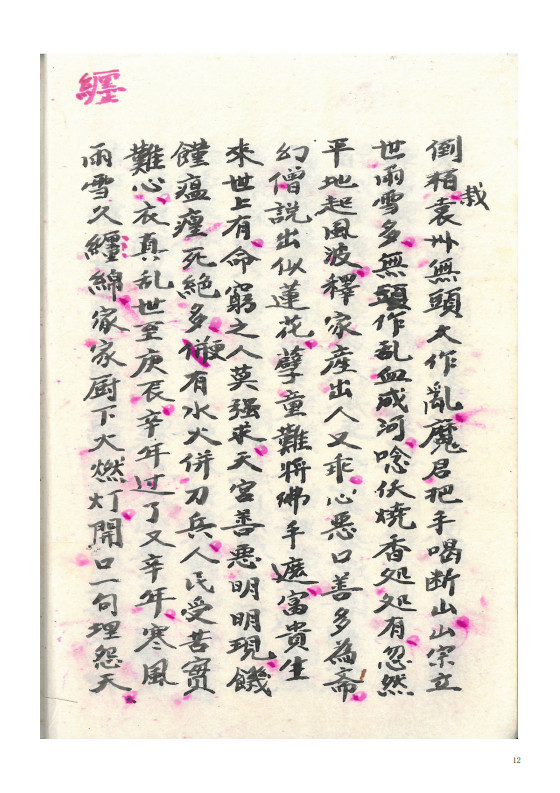 倒栽柏袁州無頭又作亂魔君把手喝断山山宗立
世雨雪多無頭作乱血成河唸伏燒香処処有忽然
平地起風波釋家產出人又乖心惡口善多為斋
幻僧説出似蓮花孽童難將佛手遮富貴生
來世上有命窮之人莫强求天宮善惡明明現饑
饉瘟𤶣死絕多便有水火併刀兵人民受苦實
難心衣真乱世至庚辰辛年过了又辛年寒風
雨雪久纏綿家家厨下火燃灯開口一句埋怨天
纏
12